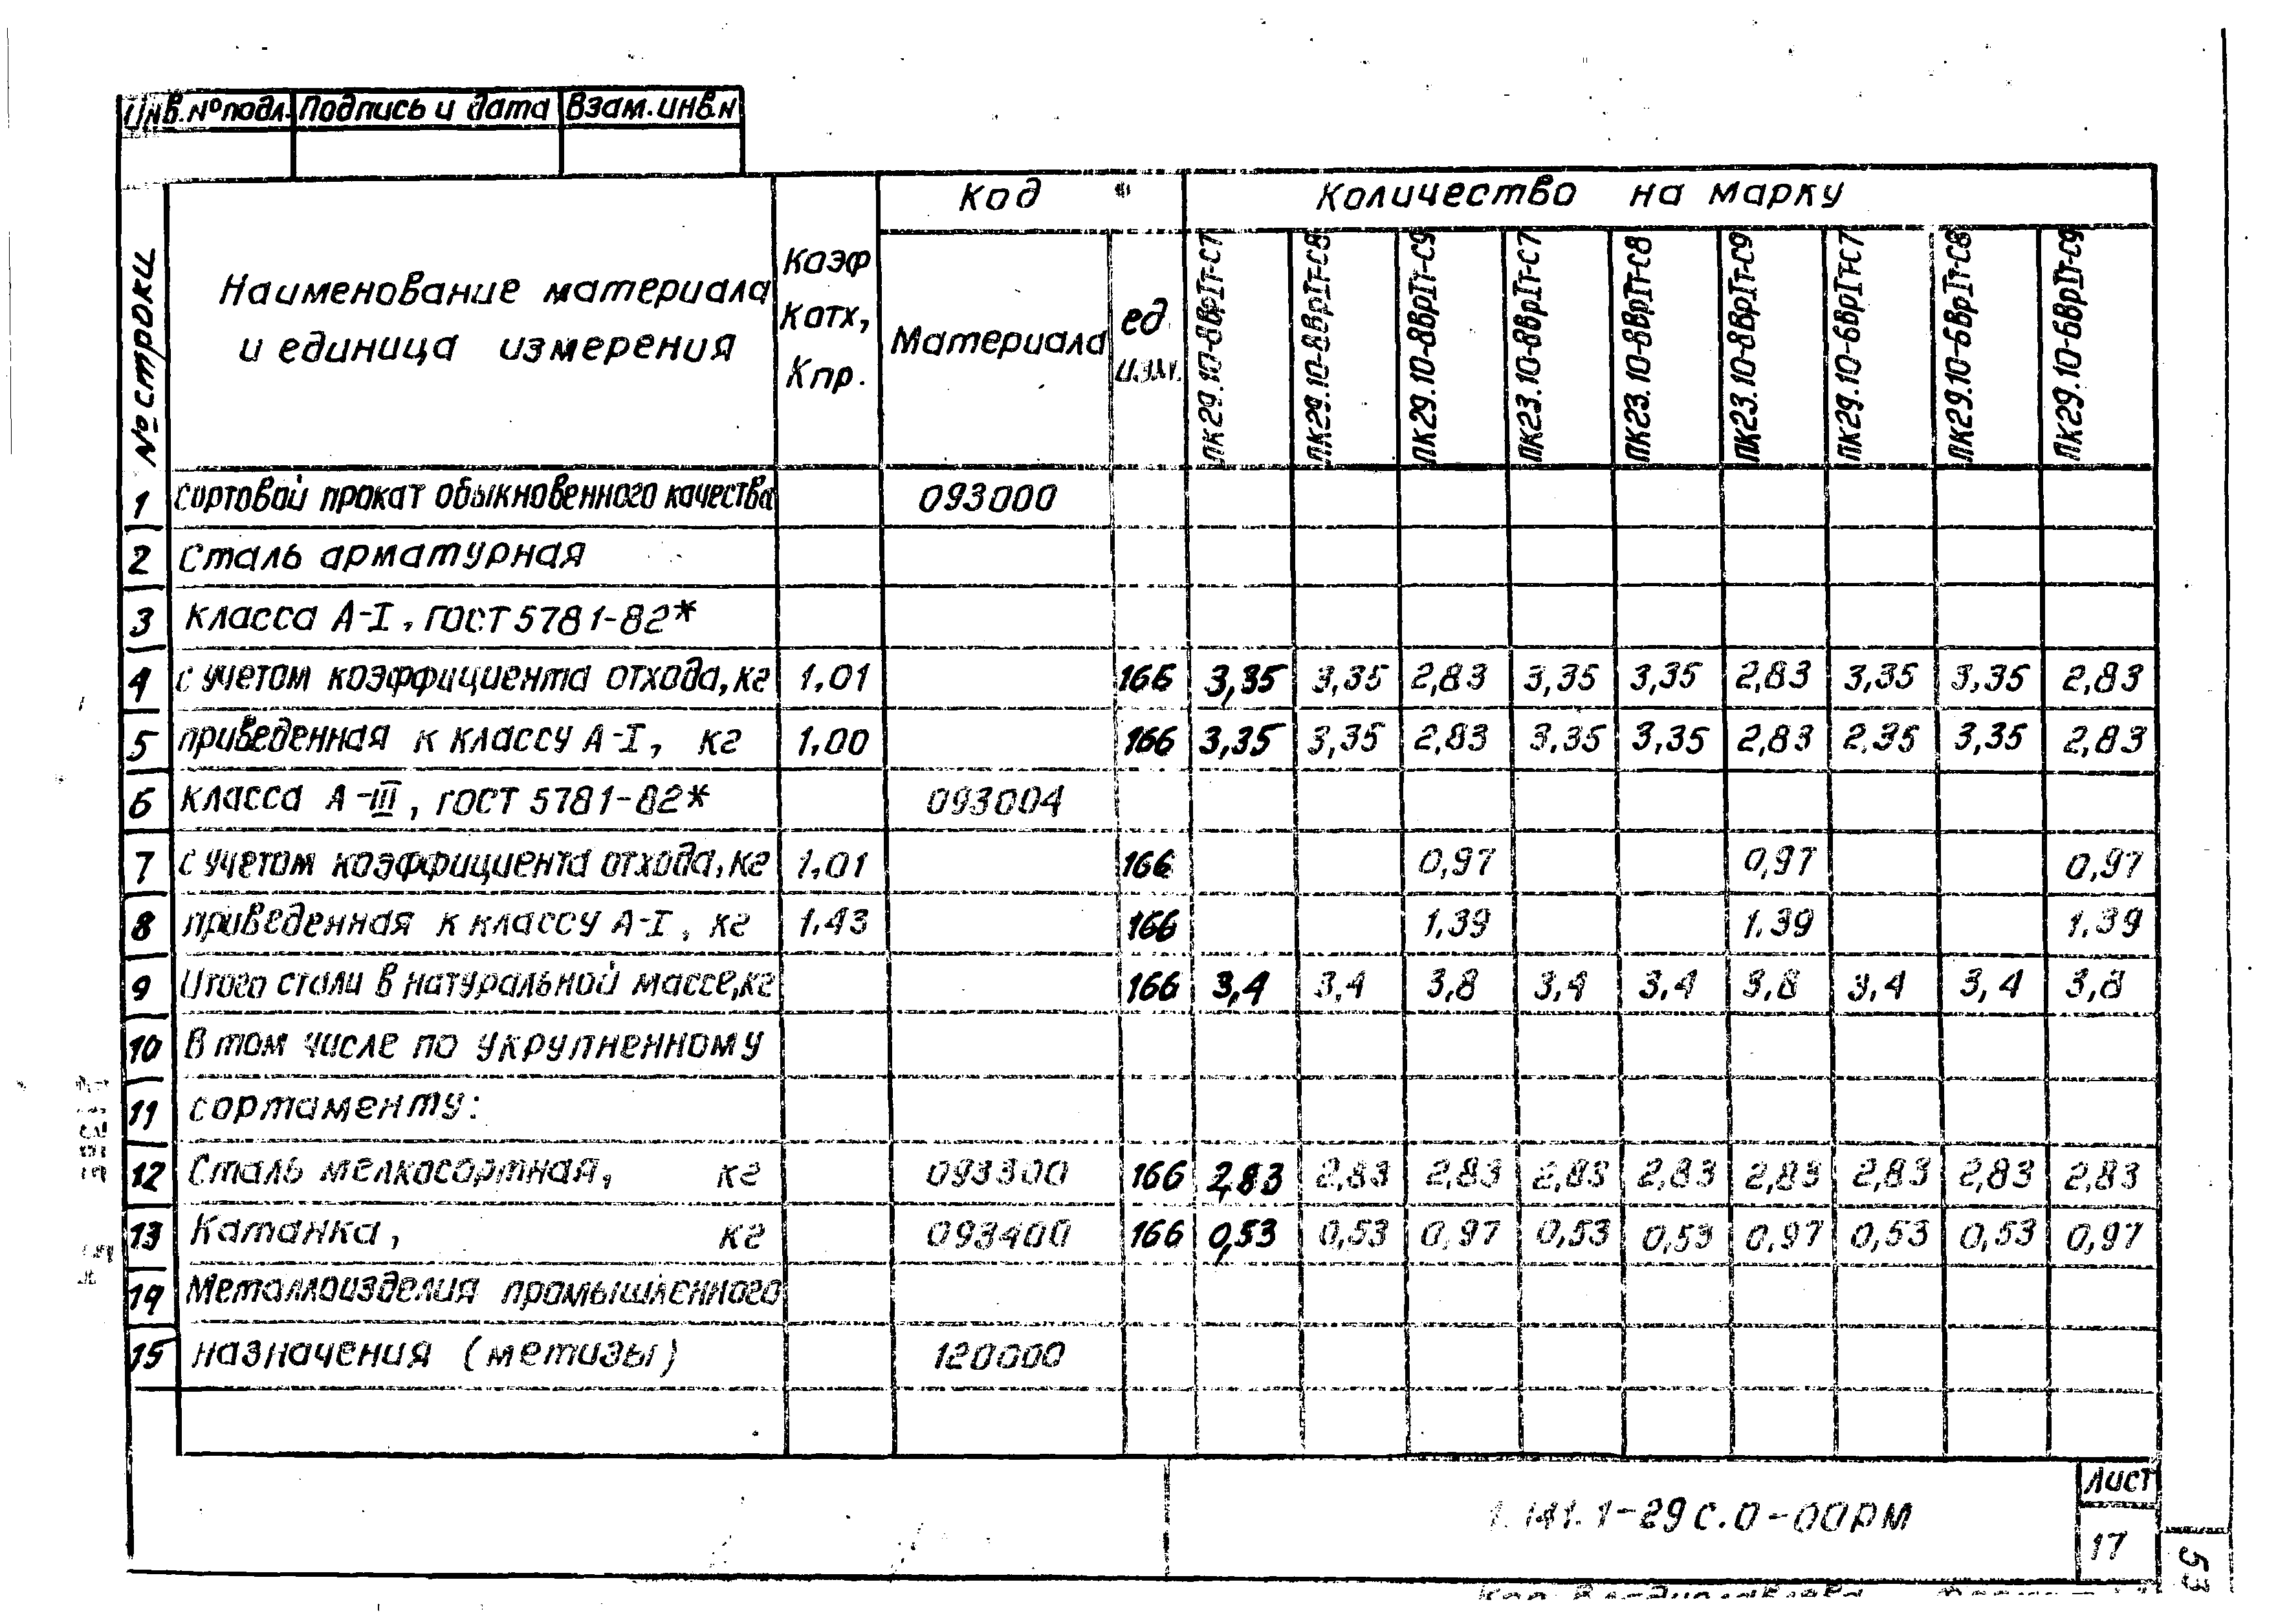 Инв.№подл. Подпись и дата Взам.инв.№
№ строки
Наименование материала
и единица измерения
Коэф
Котх,
Кпр.
Код
Материала
ед.
изм.
Количество на марку
ПК29.10-8ВрIIт-С7
ПК29.10-8ВрIIт-С8
ПК29.10-8ВрIIт-С9
ПК23.10-8ВрIIт-С7
ПК23.10-8ВрIIт-С8
ПК23.10-8ВрIIт-С9
ПК29.10-6ВрIIт-С7
ПК29.10-6ВрIIт-С8
ПК29.10-6ВрIIт-С9
1 сортовой прокат обыкновенного качества 093000
2 Сталь арматурная
3 класса А-I, ГОСТ 5781-82*
4 с учетом коэффициента отхода, кг 1.01 166 3,35 3,35 2,83 3,35 3,35 2,83 3,35 3,35 2,83
5 приведенная к классу А-I, кг 1,00 166 3,35 3,35 2,83 3,35 3,35 2,83 2.35 3,35 2,83
6 класса А-III, ГОСТ 5781-82* 093004
7 с учетом коэффициента отхода, кг 1,01 166 0,97 0,97 0,97
8 приведенная к классу А-I, кг 1.43 166 1,39 1.39 1.39
9 Итого стали в натуральной массе,кг 166 3,4 3,4 3,8 3,4 3,4 3,8 3,4 3,4 3,8
10 В том числе по укрупненному
11 сортаменту:
12 Сталь мелкосортная, кг 093300 166 2,83 2,83 2,83 2,83 2,83 2,83 2,83 2,83 2,83
13 Катанка, кг 093400 166 0,53 0,53 0,97 0,53 0,53 0,97 0,53 0,53 0,97
14 Металлоизделия промышленного
15 назначения (метизы) 120000
1.141.1-29с.0-00РМ
Лист
17
53